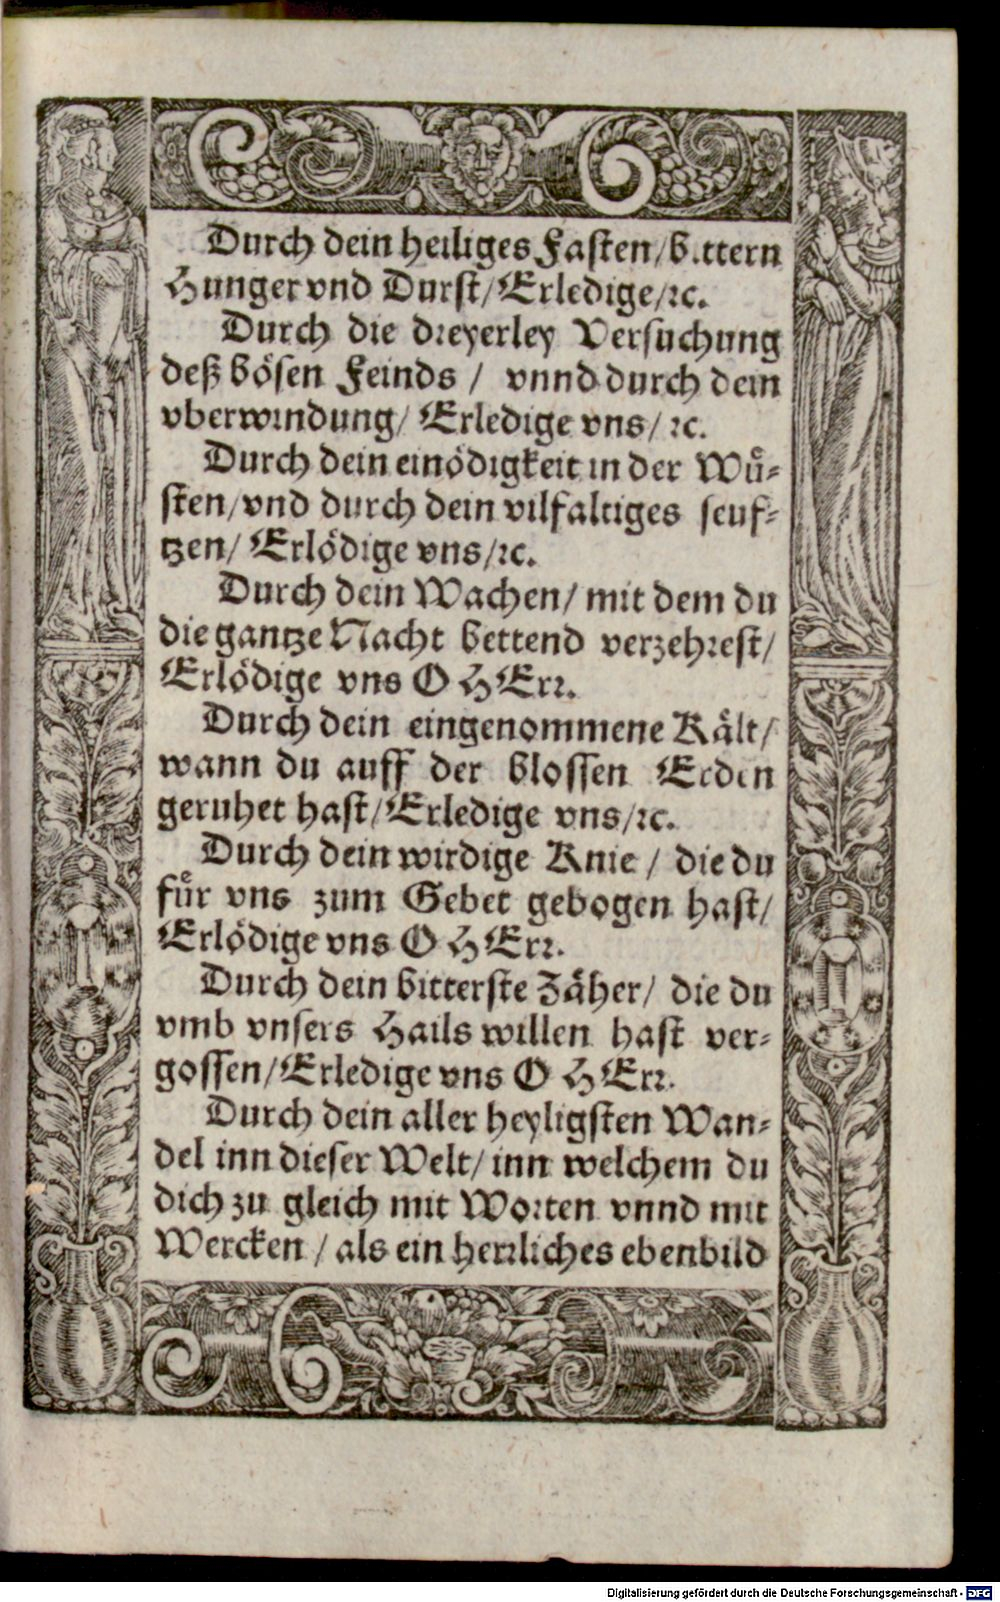 Durch dein heiliges Fasten/bittern
Hunger vnd Durst/Erledige/ꝛc.
Durch die dreyerley Versuchung
deß bösen Feinds / vnnd durch dein
vberwindung/ Erledige vns/ ꝛc.
Durch dein einödigkeit in der Wuͤ-
sten/vnd durch dein vilfaltiges seuf-
tzen/ Erlödige vns/ꝛc.
Durch dein Wachen/ mit dem du
die gantze Nacht bettend verzehrest/
Erlödige vns O HErr.
Durch dein eingenommene Kält/
wann du auff der blossen Erden
geruhet hast/Erledige vns/ꝛc.
Durch dein wirdige Knie / die du
fuͤr vns zum Gebet gebogen hast/
Erlödige vns O HErr.
Durch dein bitterste Zäher/ die du
vmb vnsers Hails willen hast ver-
gossen/Erledige vns O HErr.
Durch dein aller heyligsten Wan-
del inn dieser Welt/ inn welchem du
dich zu gleich mit Worten vnnd mit
Wercken / als ein herrliches ebenbild
Digitalisierung gefördert durch die Deutsche Forschungsgemeinschaft - DFG